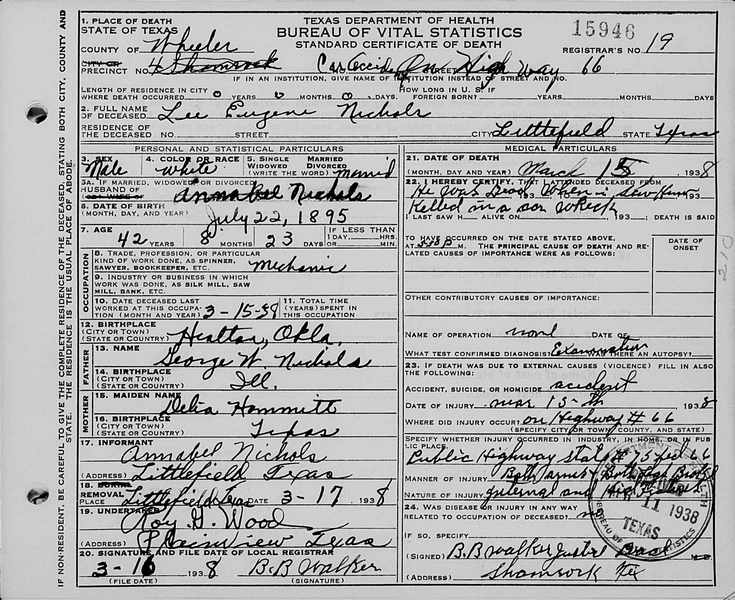 TEXAS DEPARTMENT OF HEALTH
BUREAU OF VITAL STATISTICS
STANDARD CERTIFICATE OF DEATH
15946
REGISTRAR'S NO. 19
1. PLACE OF DEATH
STATE OF TEXAS
COUNTY OF Wheeler
CITY OR
PRECINCT NO. 4 Shamrock Car Accident On High Way 66
IF IN AN INSTITUTION, GIVE NAME OF INSTITUTION INSTEAD OF STREET AND NO.
LENGTH OF RESIDENCE IN CITY
WHERE DEATH OCCURRED 0 YEARS 0 MONTHS 0 DAYS. HOW LONG IN U. S. IF FOREIGN BORN? YEARS MONTHS DAYS
2. FULL NAME
OF DECEASED Lee Eugene Nichols
RESIDENCE OF
THE DECEASED NO. STREET CITY Littlefield STATE Texas
PERSONAL AND STATISTICAL PARTICULARS
3. SEX Male
4. COLOR OR RACE white
5. SINGLE MARRIED WIDOWED DIVORCED (WRITE THE WORD) Married
5A. IF MARRIED, WIDOWED OR DIVORCED
HUSBAND OF Annabel Nichols
OR WIFE OF
6. DATE OF BIRTH
(MONTH, DAY, AND YEAR) July 22, 1895
7. AGE 42 YEARS 8 MONTHS 23 DAYS IF LESS THAN 1 DAY, HRS. MIN.
OCCUPATION
8. TRADE, PROFESSION, OR PARTICULAR
KIND OF WORK DONE, AS SPINNER,
SAWYER, BOOKKEEPER, ETC. Mechanic
9. INDUSTRY OR BUSINESS IN WHICH
WORK WAS DONE, AS SILK MILL, SAW
MILL, BANK, ETC.
10. DATE DECEASED LAST
WORKED AT THIS OCCUPATION (MONTH AND YEAR) 3-15-38
11. TOTAL TIME (YEARS) SPENT IN THIS OCCUPATION
12. BIRTHPLACE
(CITY OR TOWN)
(STATE OR COUNTRY) Okla.
FATHER
13. NAME George W. Nichols
14. BIRTHPLACE
(CITY OR TOWN)
(STATE OR COUNTRY) Ill.
MOTHER
15. MAIDEN NAME Delia Hammitt
16. BIRTHPLACE
(CITY OR TOWN)
(STATE OR COUNTRY) Texas
17. INFORMANT Annabel Nichols
(ADDRESS) Littlefield Texas
18. BURIAL
REMOVAL
PLACE Littlefield Texas DATE 3-17 1938
19. UNDERTAKER Roy G. Wood
(ADDRESS) Plainview Texas
20. SIGNATURE AND FILE DATE OF LOCAL REGISTRAR
3-16 1938 B.B Walker
(FILE DATE) (SIGNATURE)
MEDICAL PARTICULARS
21. DATE OF DEATH
(MONTH, DAY AND YEAR) March 15 1938
22. I HEREBY CERTIFY, THAT I ATTENDED DECEASED FROM
He Was Dead When I Saw him
193 TO 193
Killed in a car Wreck
I LAST SAW H ALIVE ON 193 DEATH IS SAID
TO HAVE OCCURRED ON THE DATE STATED ABOVE,
AT M. THE PRINCIPAL CAUSE OF DEATH AND RELATED CAUSES OF IMPORTANCE WERE AS FOLLOWS:
DATE OF ONSET
210
OTHER CONTRIBUTORY CAUSES OF IMPORTANCE:
NAME OF OPERATION none DATE OF
WHAT TEST CONFIRMED DIAGNOSIS? Examination WAS THERE AN AUTOPSY?
23. IF DEATH WAS DUE TO EXTERNAL CAUSES (VIOLENCE) FILL IN ALSO
THE FOLLOWING:
ACCIDENT, SUICIDE, OR HOMICIDE accident
DATE OF INJURY mar 15-th 1938
WHERE DID INJURY OCCUR? on Highway # 66
(SPECIFY CITY OR TOWN, COUNTY, AND STATE)
SPECIFY WHETHER INJURY OCCURRED IN INDUSTRY, IN HOME, OR IN PUBLIC PLACE.
Public Highway State # 75 Fed 66
MANNER OF INJURY
NATURE OF INJURY internal and
24. WAS DISEASE OR INJURY IN ANY WAY
RELATED TO OCCUPATION OF DECEASED? no
IF SO, SPECIFY
(SIGNED) B.B Walker
(ADDRESS) Shamrock Tex
11 1938
TEXAS
BUREAU OF VITAL STATISTICS
IF NON-RESIDENT, BE CAREFUL TO GIVE THE COMPLETE RESIDENCE OF THE DECEASED, STATING BOTH CITY, COUNTY AND
STATE. THE RESIDENCE IS THE USUAL PLACE OF ABODE.